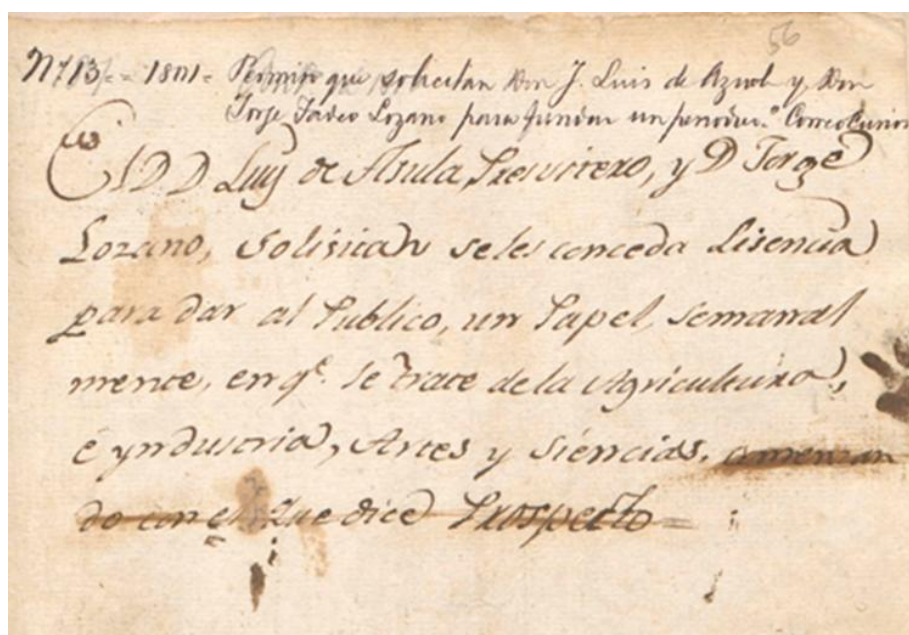 56
N713 - - 1801 - Permiso que solicitan Don J. Luis de Azuola y Don
Jorge Tadeo Lozano para fundar un periodic.º Correo Curioso
El D D Luis de Asula, Presvitero, y D Jorge
Lozano, Solisitan seles conceda Lisencia
para dar al Publico, un Papel, semanal
mente, en q.e se trate dela Agricultura,
é yndustria, Artes y Siencias, comenzan
do con el que dice Prospecto